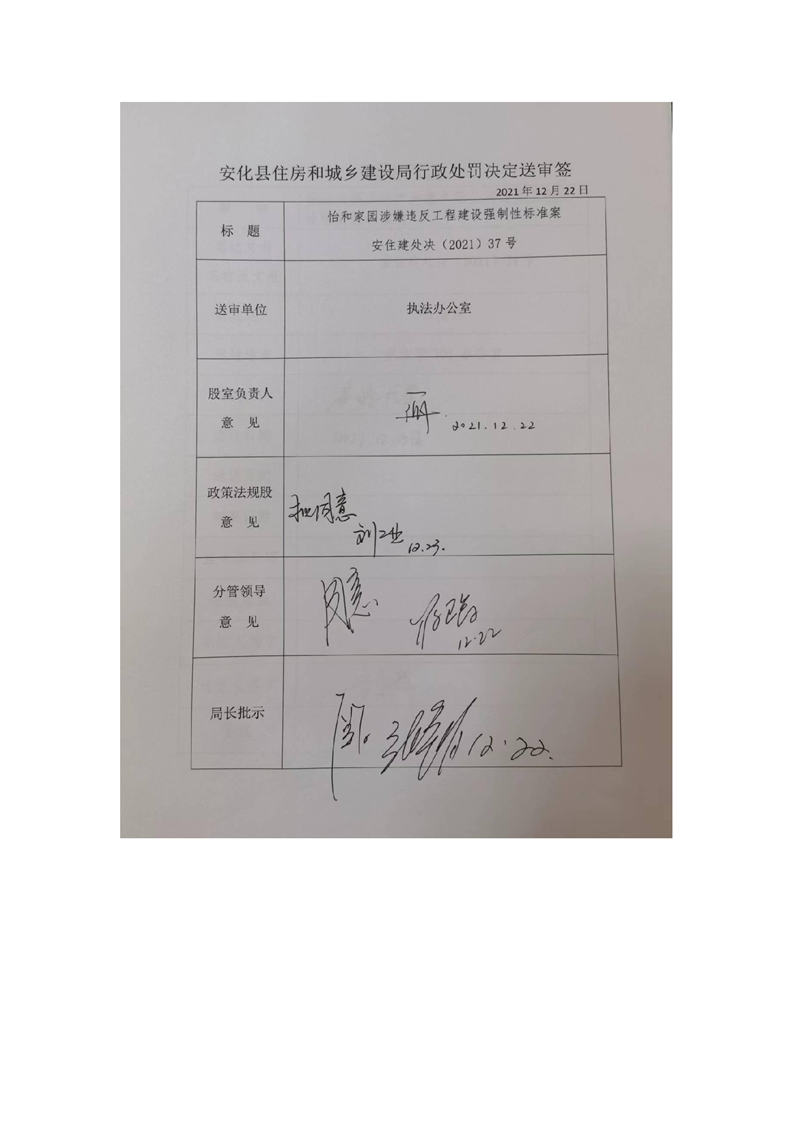 安化县住房和城乡建设局行政处罚决定送审签
2021年12月22日
标 题
怡和家园涉嫌违反工程建设强制性标准案
安住建处决（2021）37号
送审单位
执法办公室
股室负责人
意 见
2021.12.22
政策法规股
意 见
拟同意
12.23.
分管领导
意 见
同意
12.22
局长批示
12.22.